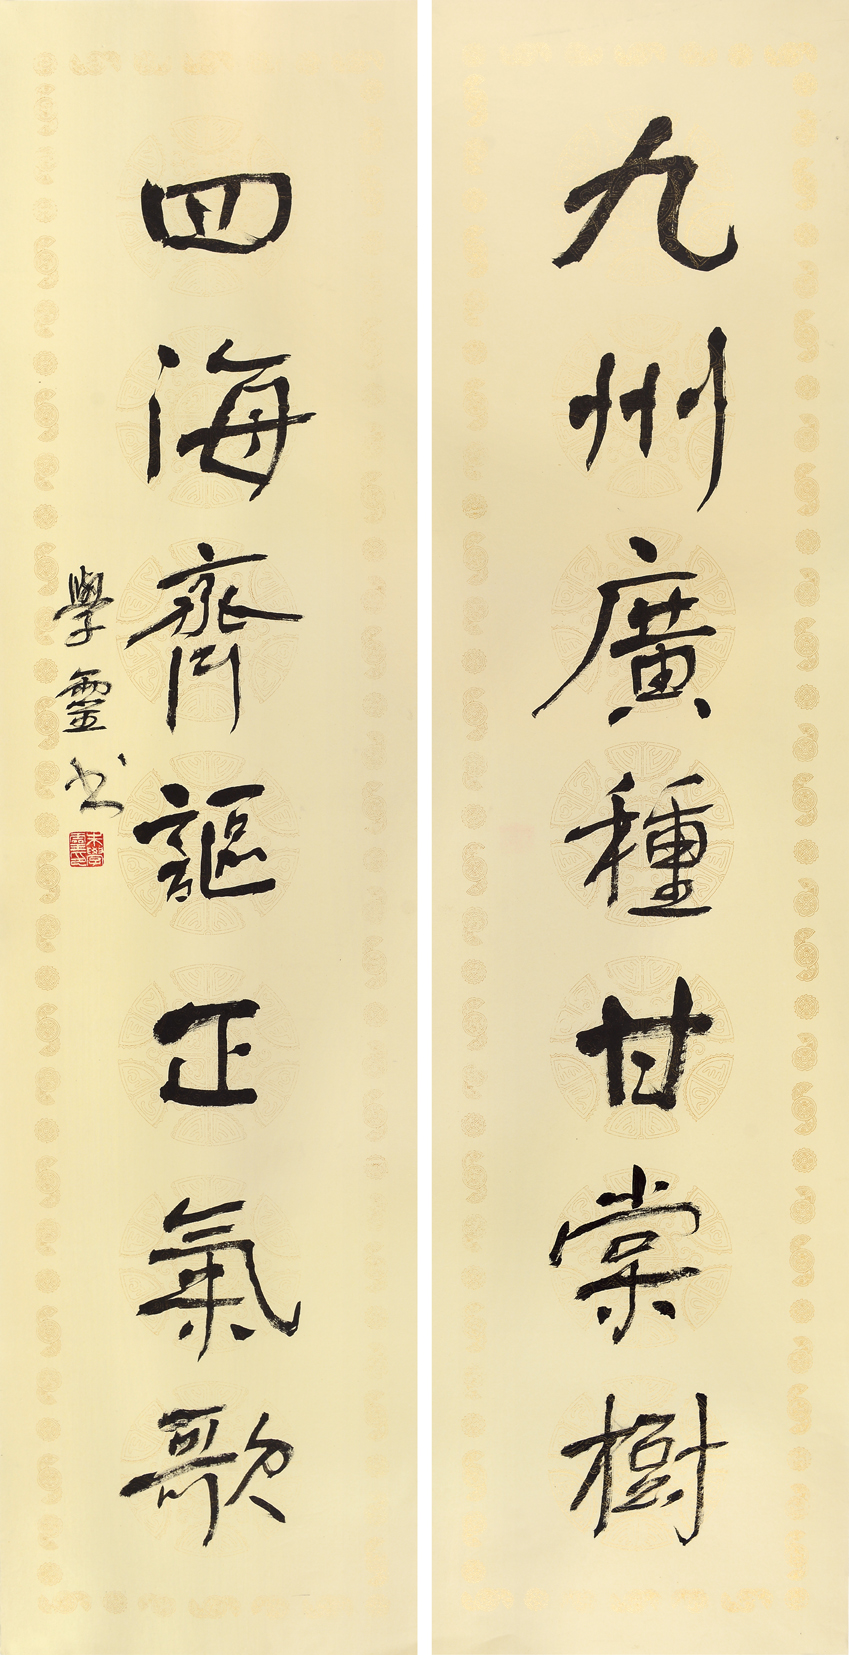 九州廣種甘棠樹
四海齊謳正氣歌
學靈书